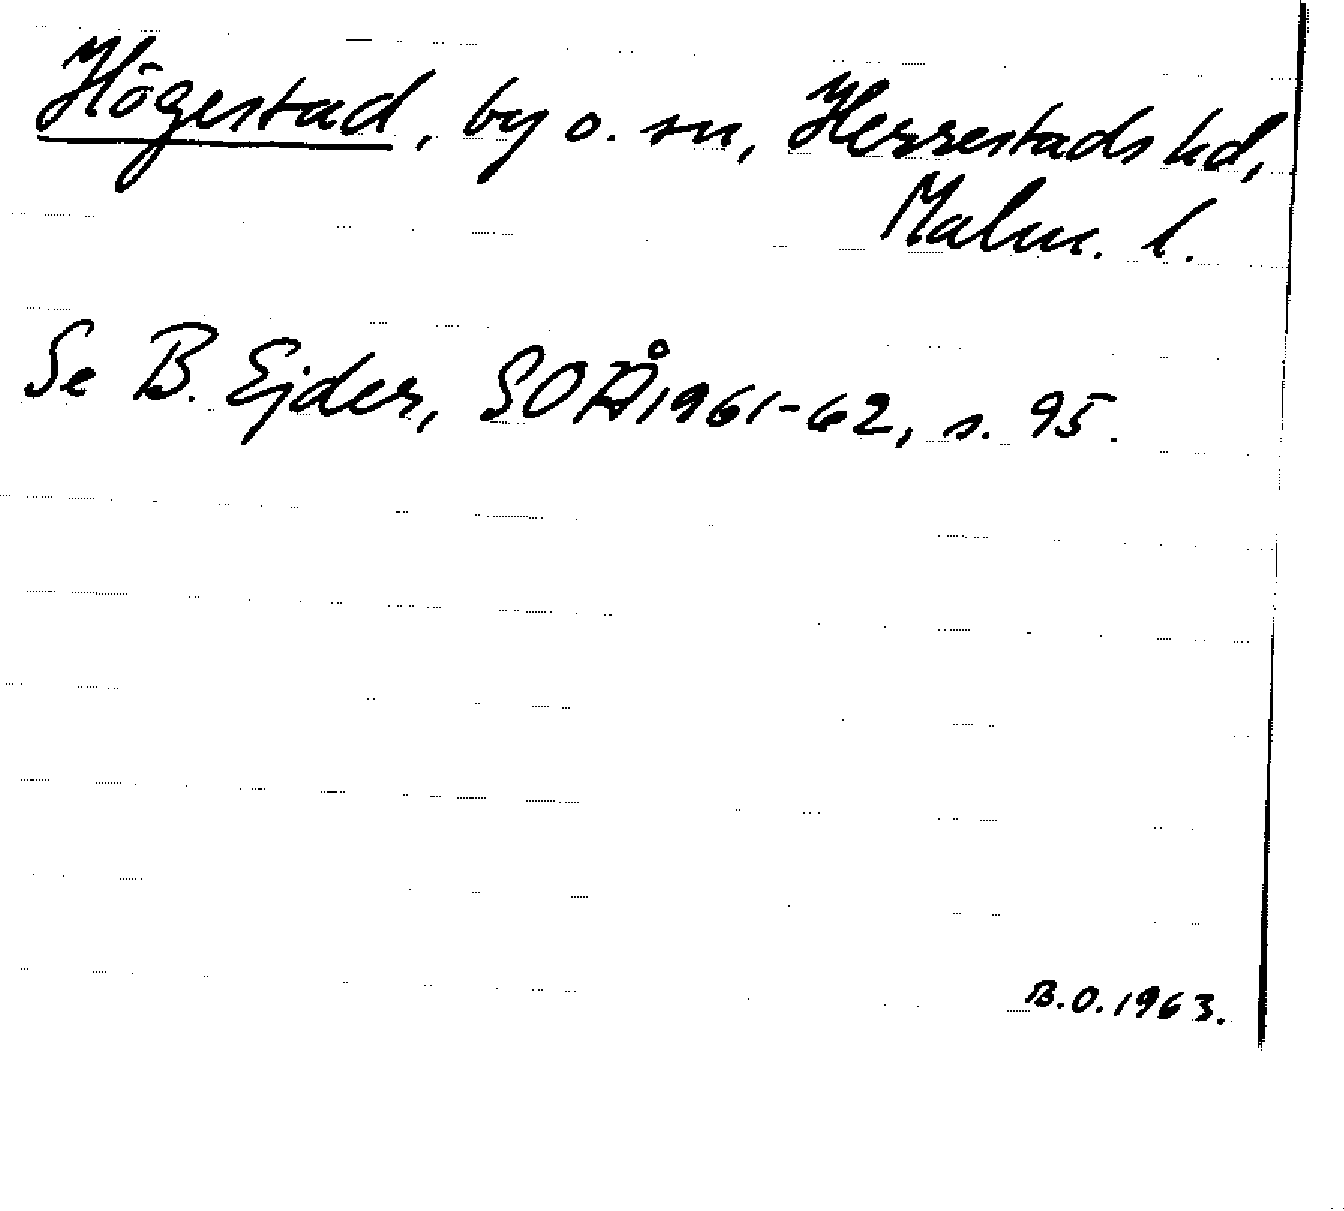 Högestad, by o. sn, Herrestads hd,
Malm. l.
Se B. Ejder, SOFÅ 1961-62, s. 95.
B.O. 1963.